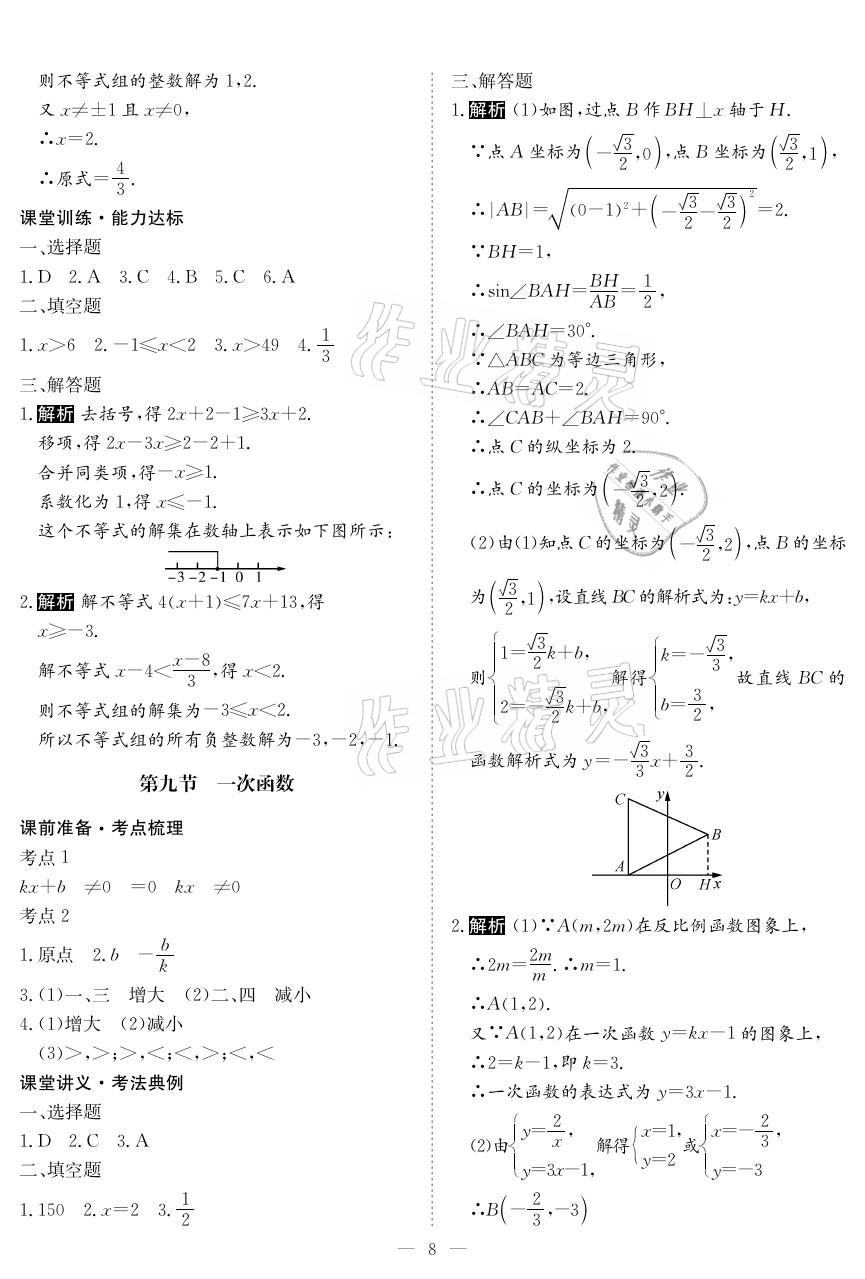 则不等式组的整数解为1,2.
又x≠±1且x≠0,
∴x=2.
∴原式=4/3.
课堂训练·能力达标
一、选择题
1.D 2.A 3.C 4.B 5.C 6.A
二、填空题
1.x>6 2.-1≤x<2 3.x>49 4.1/3
三、解答题
1.解析 去括号,得2x+2-1≥3x+2.
移项,得2x-3x≥2-2+1.
合并同类项,得-x≥1.
系数化为1,得x≤-1.
这个不等式的解集在数轴上表示如下图所示:
-3 -2 -1 0 1
2.解析 解不等式4(x+1)≤7x+13,得
x≥-3.
解不等式x-4<(x-8)/3,得x<2.
则不等式组的解集为-3≤x<2.
所以不等式组的所有负整数解为-3,-2,-1.
第九节 一次函数
课前准备·考点梳理
考点1
kx+b ≠0 =0 kx ≠0
考点2
1.原点 2.b -b/k
3.(1)一、三 增大 (2)二、四 减小
4.(1)增大 (2)减小
(3)>,>;>,<;<,>;<,<
课堂讲义·考法典例
一、选择题
1.D 2.C 3.A
二、填空题
1.150 2.x=2 3.1/2
三、解答题
1.解析 (1)如图,过点B作BH⊥x轴于H.
∵点A坐标为(-√3/2,0),点B坐标为(√3/2,1),
∴|AB|=√((0-1)²+(-√3/2-√3/2)²)=2.
∵BH=1,
∴sin∠BAH=BH/AB=1/2,
∴∠BAH=30°.
∵△ABC为等边三角形,
∴AB=AC=2.
∴∠CAB+∠BAH=90°.
∴点C的纵坐标为2.
∴点C的坐标为(-√3/2,2).
(2)由(1)知点C的坐标为(-√3/2,2),点B的坐标
为(√3/2,1),设直线BC的解析式为:y=kx+b,
则{1=√3/2k+b, 2=-√3/2k+b, 解得{k=-√3/3, b=3/2, 故直线BC的
函数解析式为y=-√3/3x+3/2.
C y B A O H x
2.解析 (1)∵A(m,2m)在反比例函数图象上,
∴2m=2m/m.∴m=1.
∴A(1,2).
又∵A(1,2)在一次函数y=kx-1的图象上,
∴2=k-1,即k=3.
∴一次函数的表达式为y=3x-1.
(2)由{y=2/x, y=3x-1, 解得{x=1, y=2 或{x=-2/3, y=-3
∴B(-2/3,-3)
— 8 —
作业精灵
作业精灵